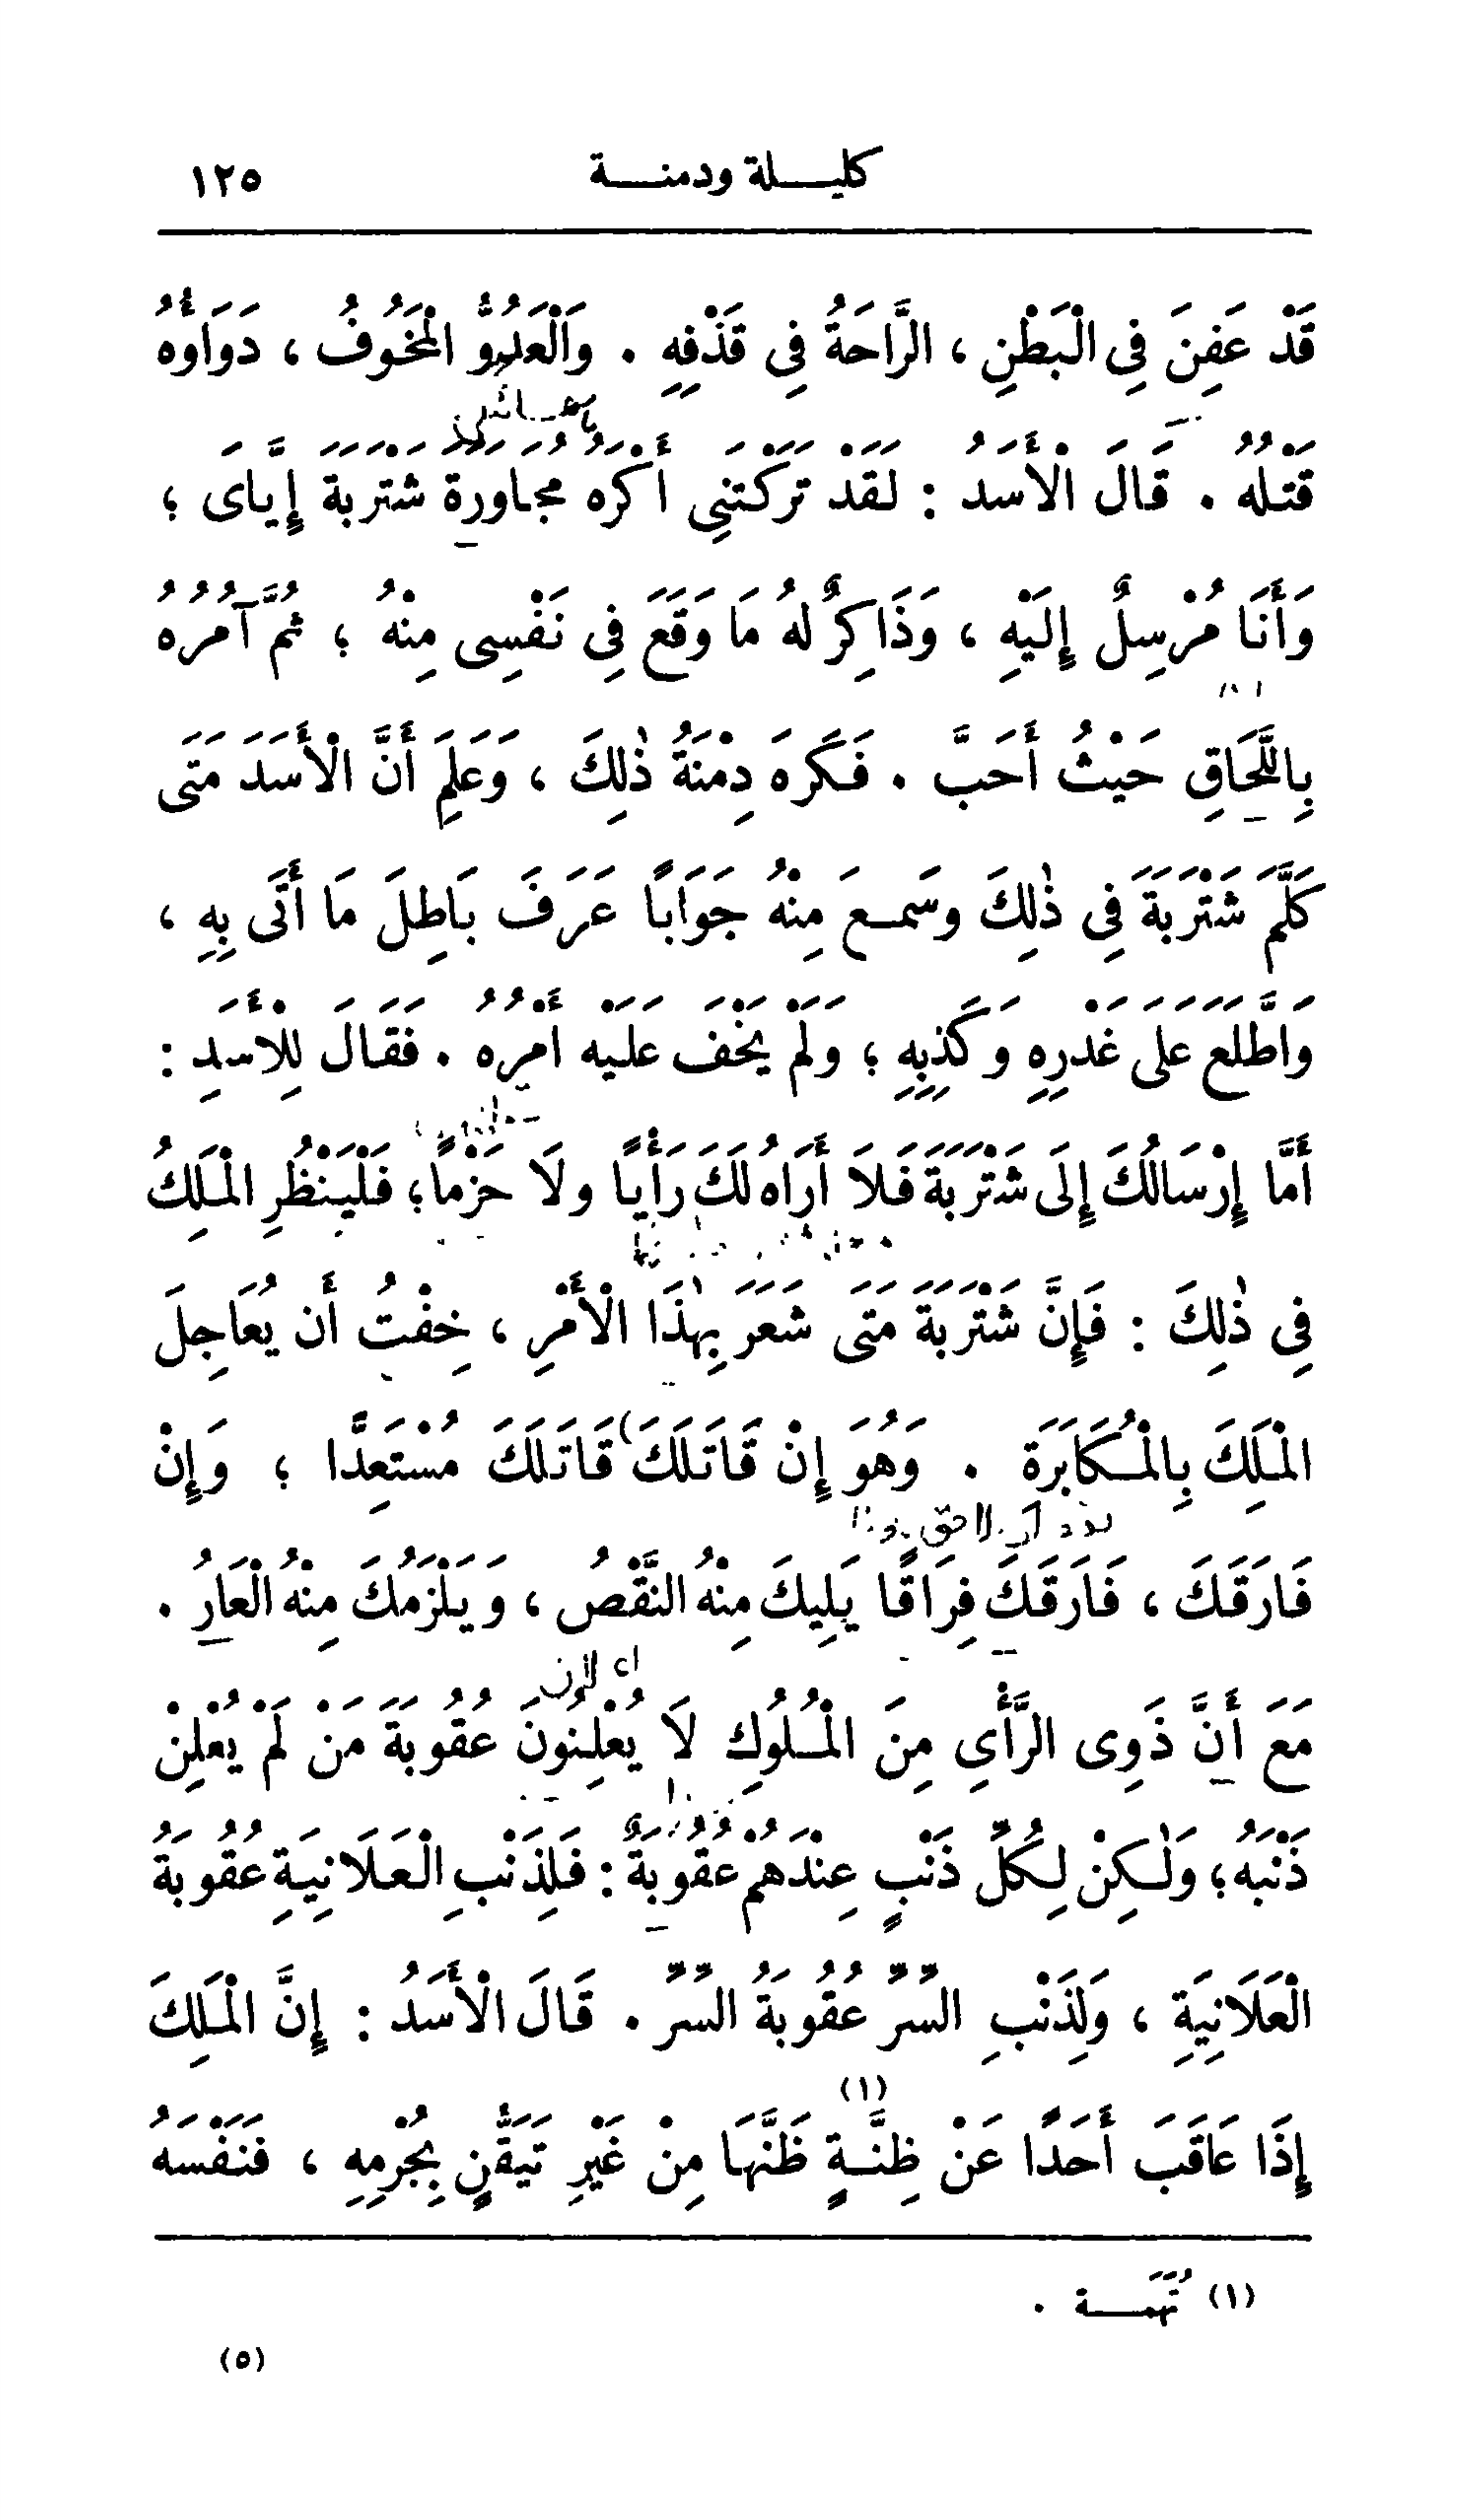 كليلة ودمنة ١٢٥
قَدْ عَفِنَ فِي الْبَطْنِ ، الرَّاحَةُ فِي قَذْفِهِ . وَالْعَدُوُّ الْمَخُوفُ ، دَوَاؤُهُ
قَتْلُهُ . قَالَ الْأَسَدُ : لَقَدْ تَرَكْتَنِي أَكْرَهُ مُجَاوَرَةَ شَتْرَبَةَ إِيَّاىَ ؛
وَأَنَا مُرْسِلٌ إِلَيْهِ ، وَذَاكِرٌ لَهُ مَا وَقَعَ فِي نَفْسِى مِنْهُ ؛ ثُمَّ آمُرُهُ
بِاللَّحَاقِ حَيْثُ أَحَبَّ . فَكَرِهَ دِمْنَةُ ذٰلِكَ ، وَعَلِمَ أَنَّ الْأَسَدَ مَتَى
كَلَّمَ شَتْرَبَةَ فِي ذٰلِكَ وسَمِعَ مِنْهُ جَوَابًا عَرَفَ بَاطِلَ مَا أَتَى بِهِ ،
وَاطَّلَعَ عَلَى غَدْرِهِ وَكَذِبِهِ ؛ وَلَمْ يَخْفَ عَلَيْهِ أَمْرُهُ . فَقَالَ لِلْأَسَدِ :
أَمَّا إِرْسَالُكَ إِلَى شَتْرَبَةَ فَلاَ أَرَاهُ لَكَ رَأْيًا ولَا حَزْمًا ؛ فَلْيَنْظُرِ الْمَلِكُ
فِي ذٰلِكَ : فَإِنَّ شَتْرَبَةَ مَتَى شَعَرَ بِهٰذَا الْأَمْرِ ، خِفْتُ أَن يُعَاجِلَ
الْمَلِكَ بِالْمُكَابَرَةِ . وَهُوَ إِنْ قَاتَلَكَ قَاتَلَكَ مُسْتَعِدًّا ؛ وَإِنْ
فَارَقَكَ ، فَارَقَكَ فِرَاقًا يَلِيكَ مِنْهُ النَّقْصُ ، وَيَلْزَمُكَ مِنْهُ الْعَارُ .
مَعَ أَنَّ ذَوِى الرَّأْيِ مِنَ الْمُلُوكِ لَا يُعْلِنُونَ عُقُوبَةَ مَنْ لَمْ يُعْلِنْ
ذَنْبَهُ ؛ وَلٰكِنْ لِكُلِّ ذَنْبٍ عِنْدَهُمْ عُقُوبَةٌ : فَلِذَنْبِ الْعَلَانِيَةِ عُقُوبَةُ
الْعَلَانِيَةِ ، وَلِذَنْبِ السِّرِّ عُقُوبَةُ السِّرِّ . قَالَ الْأَسَدُ : إِنَّ الْمَلِكَ
إِذَا عَاقَبَ أَحَدًا عَنْ ظِنَّةٍ (١) ظَنَّهَا مِنْ غَيْرِ تَيَقُّنٍ بِجُرْمِهِ ، فَنَفْسَهُ
(١) تُهَمَة .
(٥)